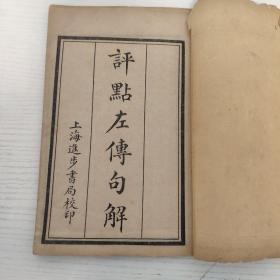 評點左傳句解
上海進步書局校印